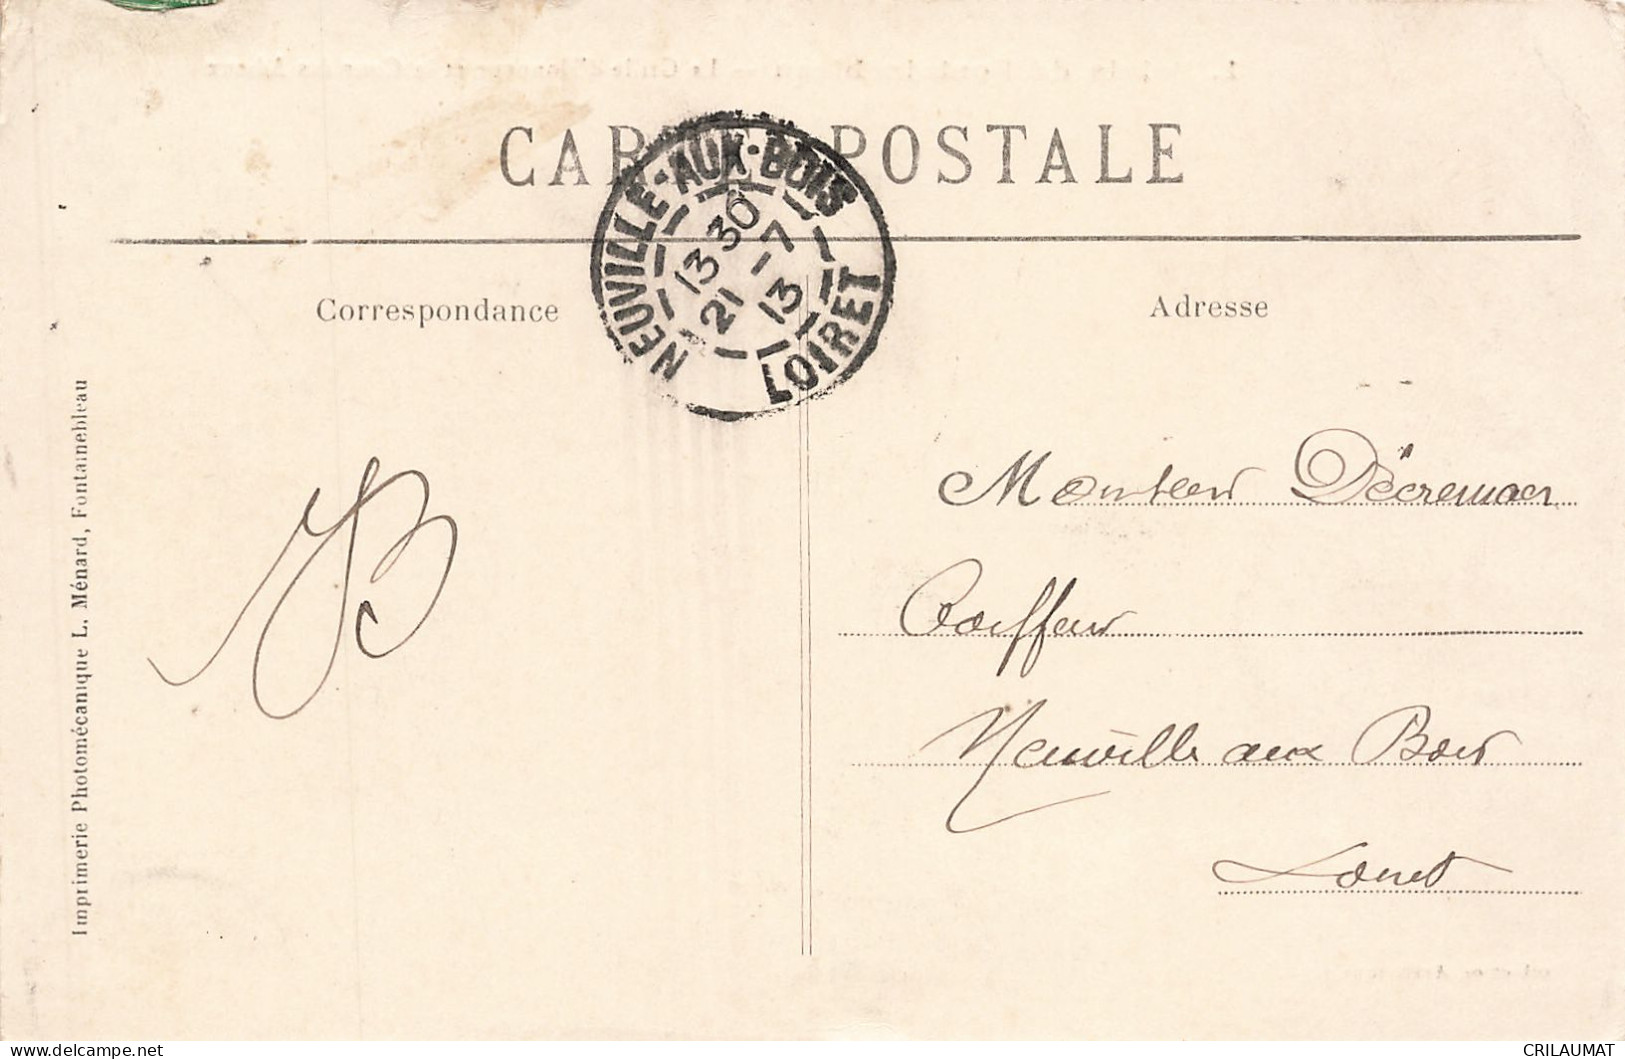 CARTE POSTALE
NEUVILLE-AUX-BOIS
13 30
21 -7
13
LOIRET
Correspondance
Adresse
Imprimerie Photomécanique L. Ménard, Fontainebleau
Monsieur Décremaer
Coiffeur
Neuville aux Bois
Loiret
CRILAUMAT